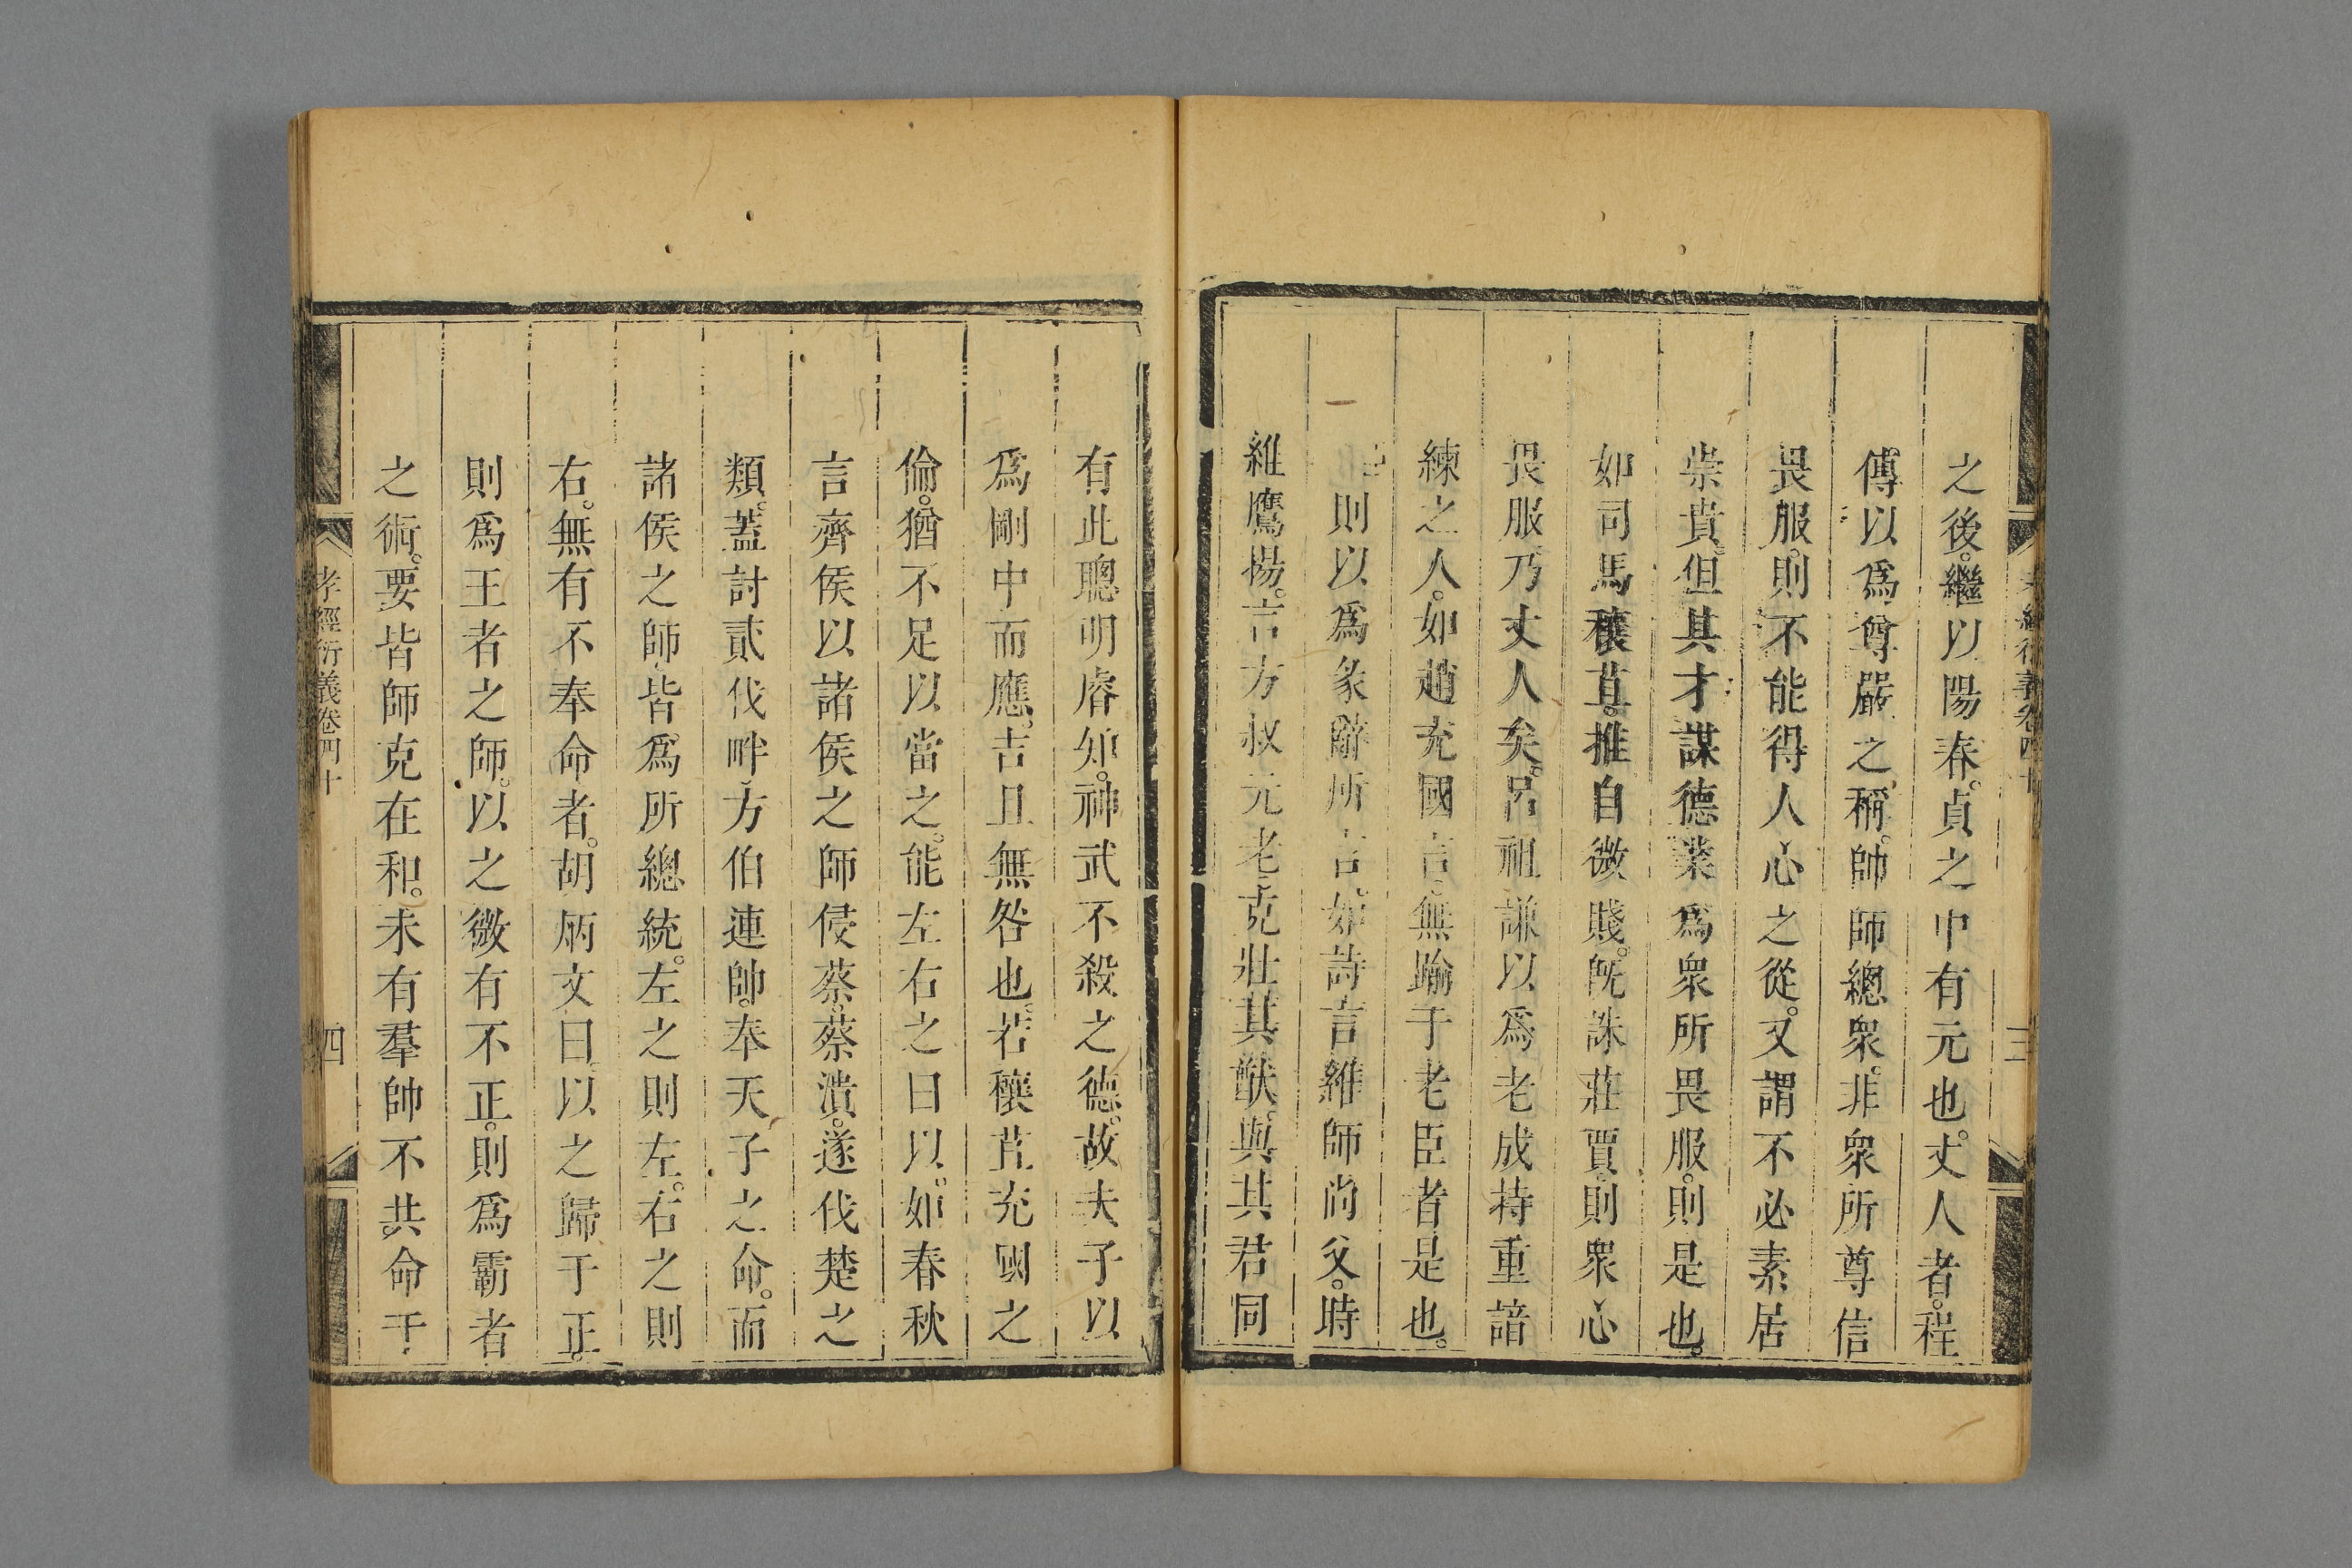 之後。繼以陽春。貞之中有元也。丈人者。程
傅以爲尊嚴之稱。帥師總衆。非衆所尊信
畏服。則不能得人心之從。又謂不必素居
崇貴。但其才謀德業爲衆所畏服。則是也。
如司馬穰苴。推自微賤。旣誅莊賈。則衆心
畏服乃丈人矣。呂祖謙以爲老成持重諳
練之人。如趙充國言。無踰于老臣者是也。
則以爲象辭所言。如詩言維師尚父。時
維鷹揚。言方叔元老克壯其猷。與其君同
孝經衍義卷四十
三
有此聰明睿知。神武不殺之德。故夫子以
爲剛中而應。吉且無咎也。若穰苴充國之
倫。猶不足以當之。能左右之曰以。如春秋
言齊侯以諸侯之師侵蔡。蔡潰。遂伐楚之
類。蓋討貳伐畔。方伯連帥。奉天子之命。而
諸侯之師。皆爲所總統。左之則左。右之則
右。無有不奉命者。胡炳文曰。以之歸于正。
則爲王者之師。以之微有不正。則爲霸者
之術。要皆師克在和。未有羣帥不共命于
孝經衍義卷四十
四